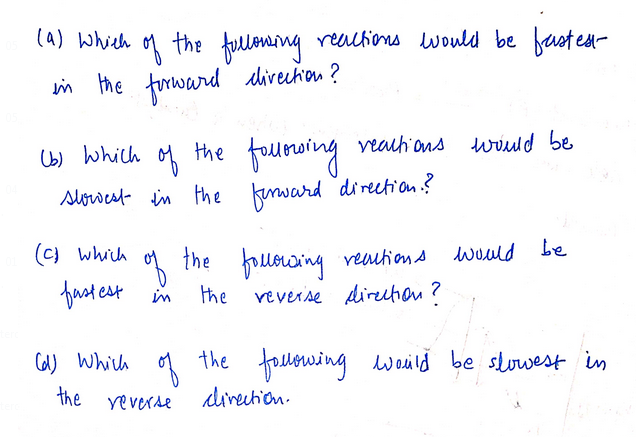 (a) Which of the following reactions would be fastest
in the forward direction?
(b) Which of the following reactions would be
slowest in the forward direction?
(c) Which of the following reactions would be
fastest in the reverse direction?
(d) Which of the following would be slowest in
the reverse direction.